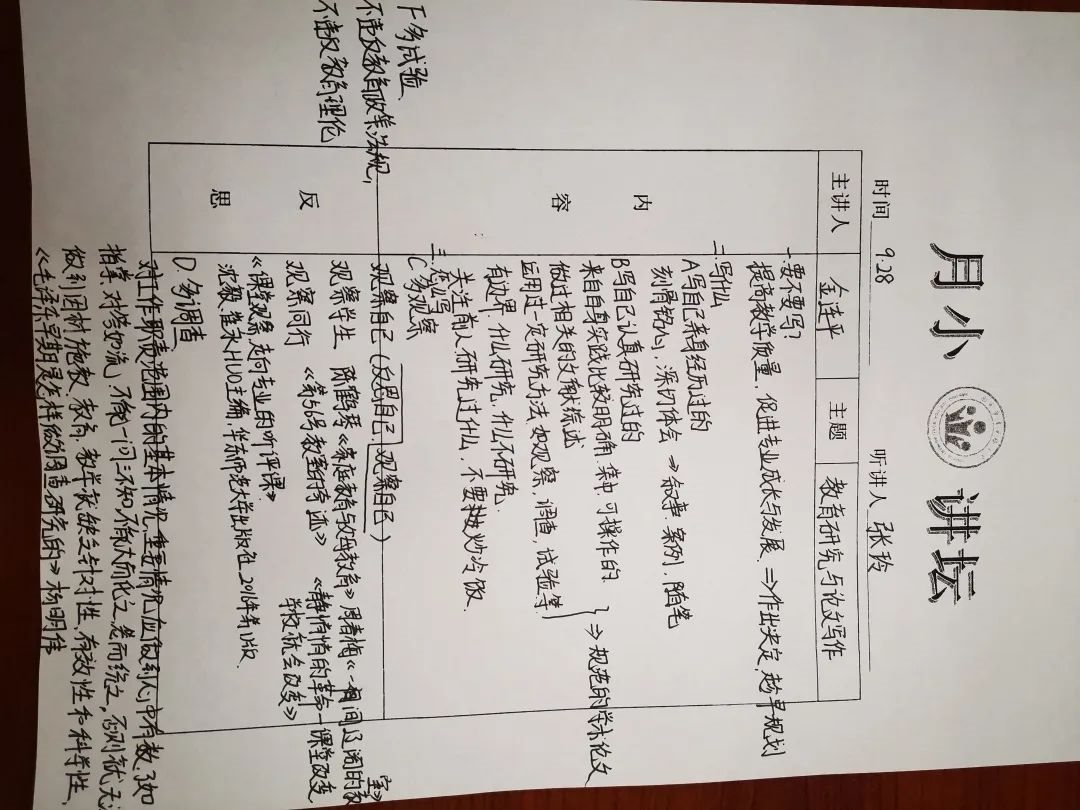 月小讲坛
时间 9.28 听讲人 张玲
主讲人 金连平 主题 教育研究与论文写作
内容
一.要不要写?
提高教学质量、促进专业成长与发展 ⇒作出决定,趁早规划
二.写什么
A写自己亲身经历过的
刻骨铭心,深切体会 → 叙事.案例.随笔
B写自己认真研究过的
来自自身实践比较明确.集中.可操作的
做过相关的文献综述
运用过一定研究方法,如观察,调查,试验等
} ⇒ 规范的学术论文
有边界,什么研究,什么不研究.
关注前人研究过什么,不要炒冷饭.
三.怎么写
C多观察
反思
观察自己(反思自己.观察自己)
观察学生 陈鹤琴《家庭教育与父母教育》 周春梅《一间辽阔的教室》
观察同行 《第56号教室的奇迹》 《静悄悄的革命—课堂改变
学校就会改变》
《课堂观察 走向专业的听评课》
沈毅、崔允漷主编,华东师范大学出版社
D.多调查
对工作职责范围内的基本情况,重要情况应做到心中有数,了如
指掌,对答如流,不能一问三不知,不能大而化之,笼而统之,否则就无
做到因材施教,教育、教学就缺乏针对性,有效性和科学性,
《毛泽东早期是怎样做调查研究的》杨明伟
F多试验.
不违反教育政策,法规,
不违反教育理伦